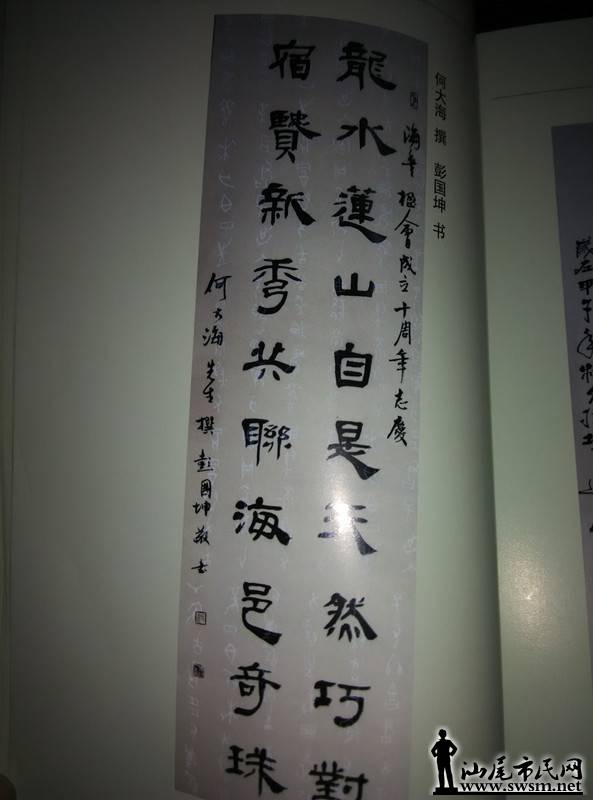 何大海 撰 彭国坤 书
海丰楹會成立十周年志慶
龍水蓮山自是天然巧對
宿賢新秀共聯海邑奇珠
何大海先生撰彭國坤敬书
甲子年
汕尾市民网
www.swsm.net